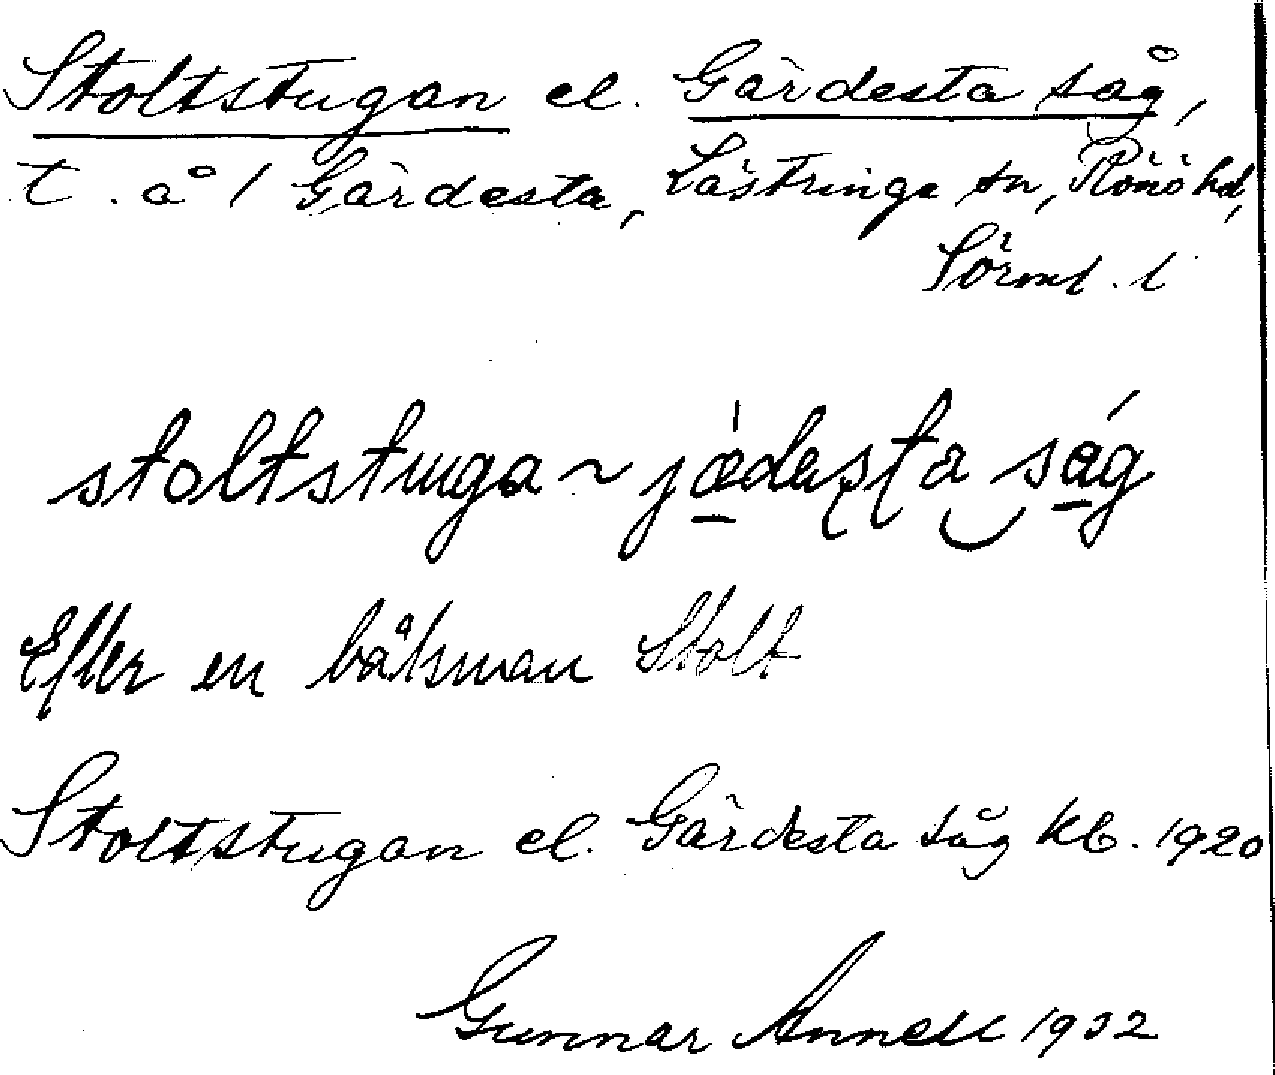 Stoltstugan el. Gärdesta såg,
t. å / Gärdesta, Lästringe sn, Rönö hd,
Sörml. l
stoltstuga ~ jædesta såg
Efter en båtsman Stolt
Stoltstugan el. Gärdesta såg kb. 1920
Gunnar Annell 1932